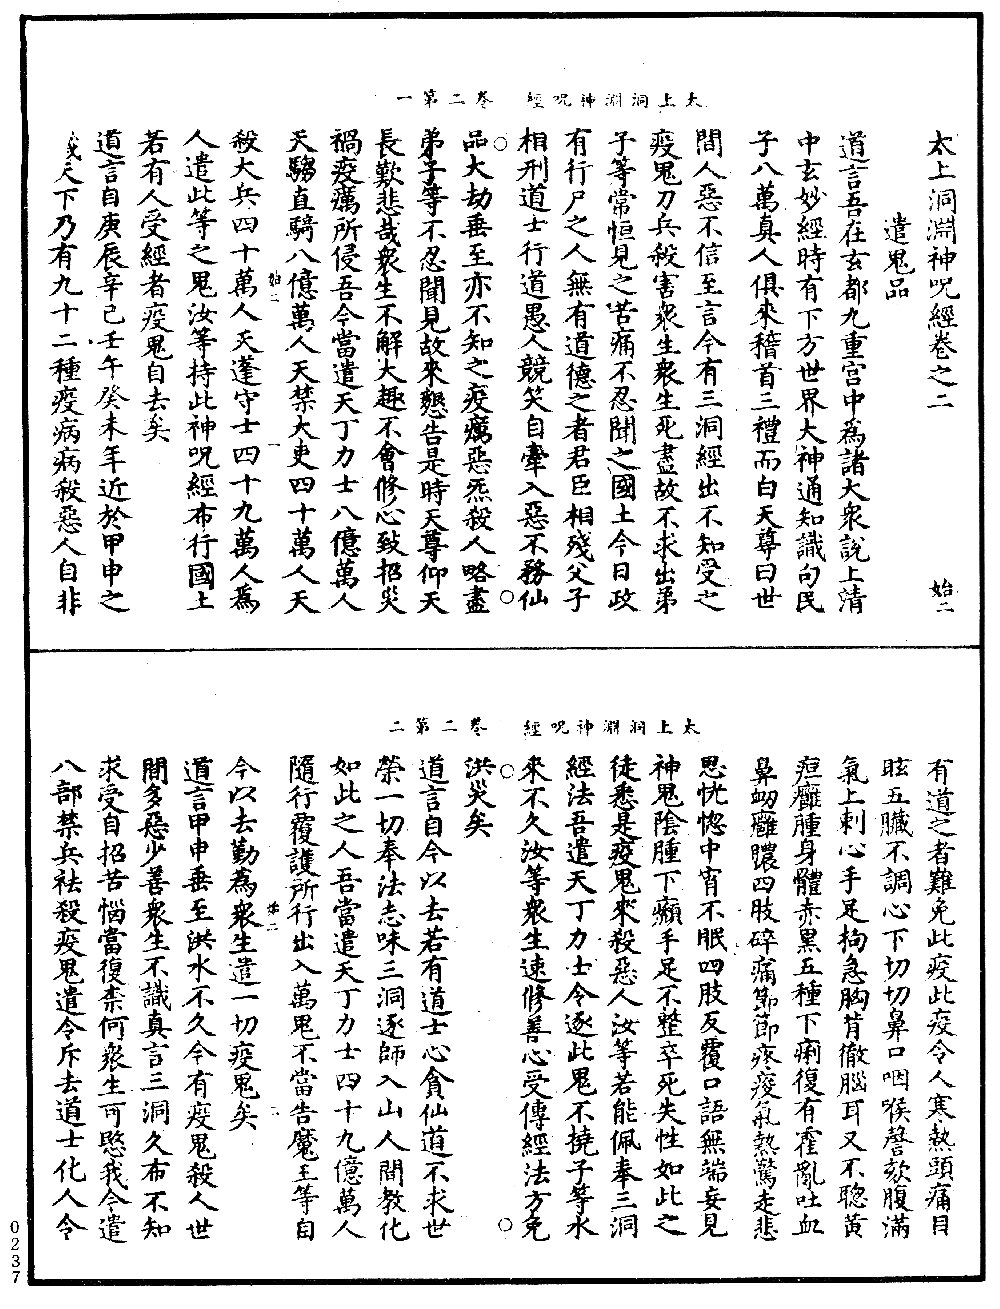 太上洞淵神呪經　卷二第一
太上洞淵神呪經卷之二　始二
遣鬼品
道言吾在玄都九重宫中爲諸大衆說上清
中玄妙經時有下方世界大神通知識句民
子八萬真人俱來稽首三禮而白天尊曰世
間人惡不信至言今有三洞經出不知受之
疫鬼刀兵殺害衆生衆生死盡故不求出弟
子等常恒見之苦痛不忍聞之國土今日政
有行尸之人無有道德之者君臣相殘父子
相刑道士行道愚人競笑自牽入惡不務仙
品大劫垂至亦不知之疫癘惡炁殺人略盡
弟子等不忍聞見故來懇告是時天尊仰天
長歎悲哉衆生不解大趣不會修心致招災
禍疫癘所侵吾今當遣天丁力士八億萬人
天騶直騎八億萬人天禁大吏四十萬人天
始二　一
殺大兵四十萬人天蓬守士四十九萬人爲
人遣此等之鬼汝等持此神呪經布行國土
若有人受經者疫鬼自去矣
道言自庚辰辛巳壬午癸未年近於甲申之
歲天下乃有九十二種疫病病殺惡人自非
太上洞淵神呪經　卷二第二
有道之者難免此疫此疫令人寒熱頭痛目
眩五臟不調心下切切鼻口咽喉謦欬腹滿
氣上刺心手足拘急胸背徹腦耳又不聰黄
疸癰腫身體赤黑五種下痢復有霍亂吐血
鼻衂癰膿四肢碎痛節節疼痠氣熱驚走悲
思恍惚中宵不眠四肢反覆口語無端妄見
神鬼陰腫下癩手足不整卒死失性如此之
徒悉是疫鬼來殺惡人汝等若能佩奉三洞
經法吾遣天丁力士令逐此鬼不撓子等水
來不久汝等衆生速修善心受傳經法方免
洪災矣
道言自今以去若有道士心貪仙道不求世
榮一切奉法志味三洞逐師入山人間教化
如此之人吾當遣天丁力士四十九億萬人
隨行覆護所行出入萬鬼不當告魔王等自
始二　一
今以去勤爲衆生遣一切疫鬼矣
道言甲申垂至洪水不久今有疫鬼殺人世
間多惡少善衆生不識真言三洞久布不知
求受自招苦惱當復柰何衆生可愍我今遣
八部禁兵祛殺疫鬼遣令斥去道士化人令
0237